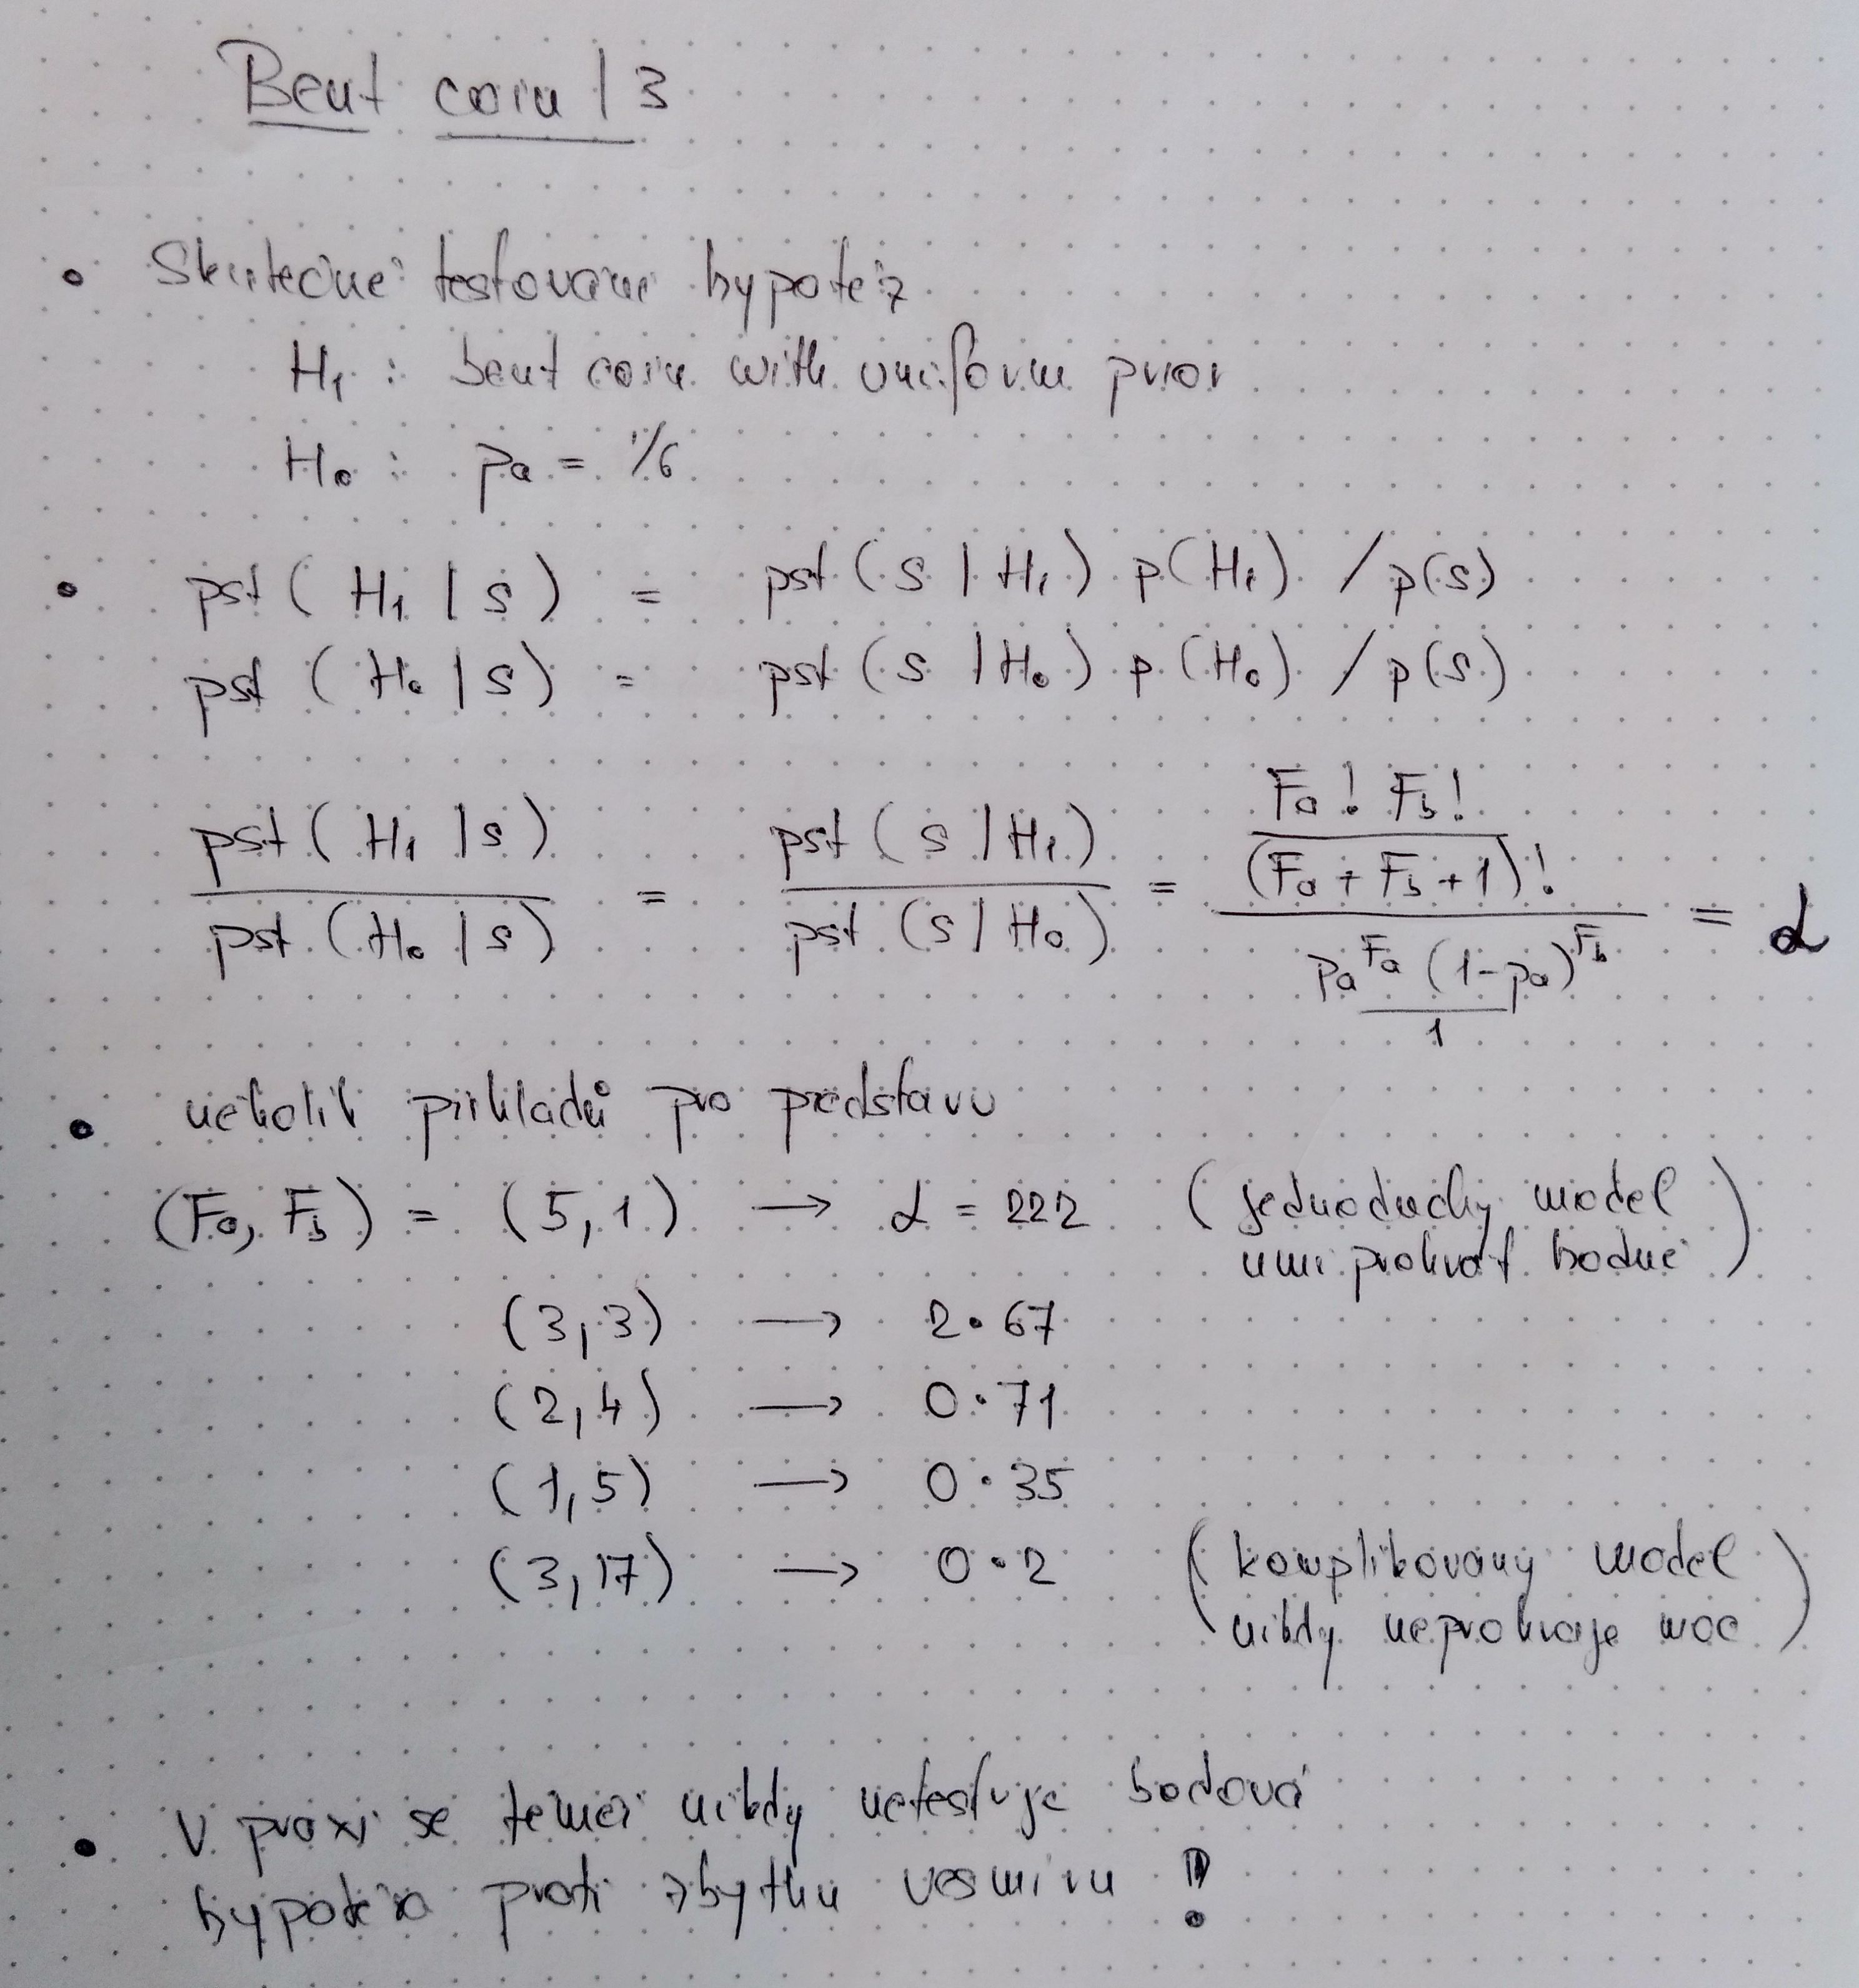 Bent coin / 3
• Skutečné testování hypotéz
H₁ : bent coin with uniform prior
H₀ : pa = 1/6
• pst ( H₁ | s ) = pst ( s | H₁ ) p(H₁) / p(s)
pst ( H₀ | s ) = pst ( s | H₀ ) p(H₀) / p(s)
pst ( H₁ | s ) / pst ( H₀ | s ) = pst ( s | H₁ ) / pst ( s | H₀ ) = (Fa! Fb! / (Fa + Fb + 1)!) / (pa^Fa (1-pa)^Fb / 1) = α
• několik příkladů pro představu
(Fa, Fb) = (5,1) → α = 222 (jednoduchý model
umí prohrát hodně)
(3,3) → 2.67
(2,4) → 0.71
(1,5) → 0.35
(3,17) → 0.2 (komplikovaný model
nikdy neprohraje moc)
• V praxi se téměř nikdy netestuje bodová
hypotéza proti zbytku vesmíru !